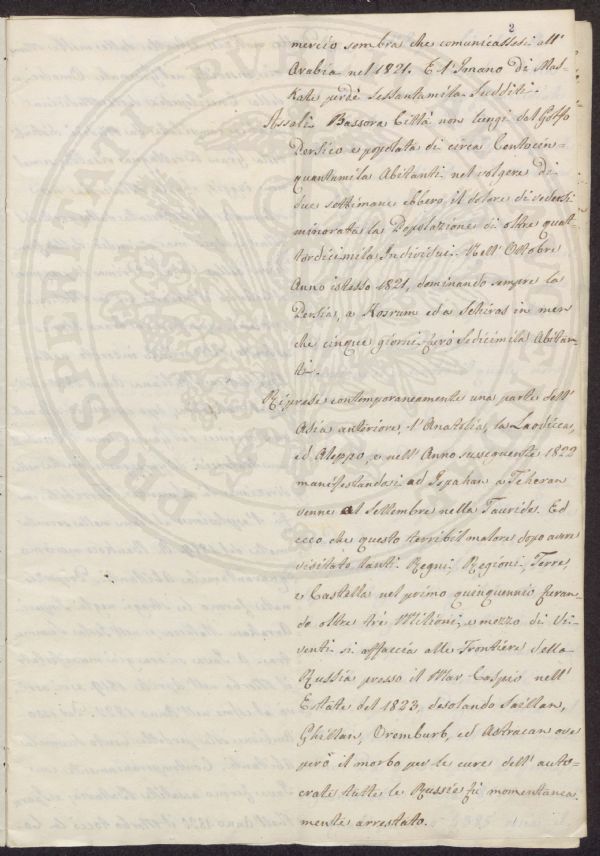 2
mercio sembra che comunicassesi all'
Arabia nel 1821. E l'Imano di Mas-
kate perdè sessantamila Sudditi.
Assalì Bassora Città non lungi dal Golfo
Persico e popolata di circa Centocin-
quantamila Abitanti nel volgere di
due settimane ebbero il dolore di vedersi
minorata la Popolazione di oltre quat-
tordicimila Individui. Nell' Ottobre
Anno istesso 1821, dominando sempre la
Persia, a Kosrum ed a Schiras in men
che cinque giorni furò sedicimila Abitan-
ti.
Riprese contemporaneamente una parte dell'
Asia anteriore, l'Anatolia, la Laodicea,
ed Aleppo, e nell' Anno susseguente 1822
manifestandosi ad Ispahan a Teheran
venne al Settembre nella Tauride. Ed
ecco che questo terribil malore dopo avere
visitato tanti Regni, Regioni, Terre,
e Castella nel primo quinquennio furan-
do oltre trè Milioni, e mezzo di Vi-
venti si affaccia alle Frontiere della
Russia presso il Mar Caspio nell'
Estate del 1823, desolando
Ghillan, Oremburb, ed Astracan ove
però il morbo per le cure dell' auto-
crate tutte le Russie fù momentanea-
mente arrestato.
PROSPERITATI PVBL